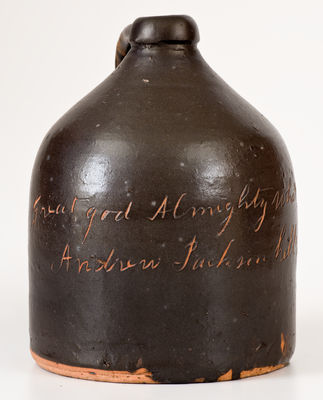 Great god Almighty
Andrew Jackson